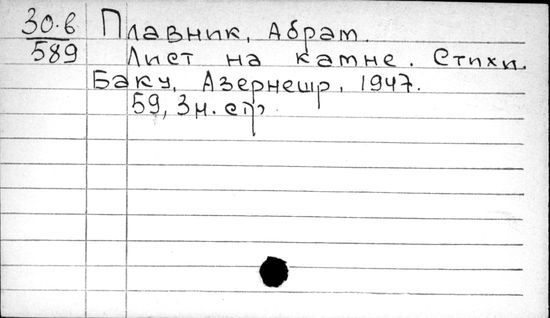 30.б Плавник, Абрам.
589 Лист на камне. Стихи.
Баку, Азернешр, 1947.
59, 3 н. стр